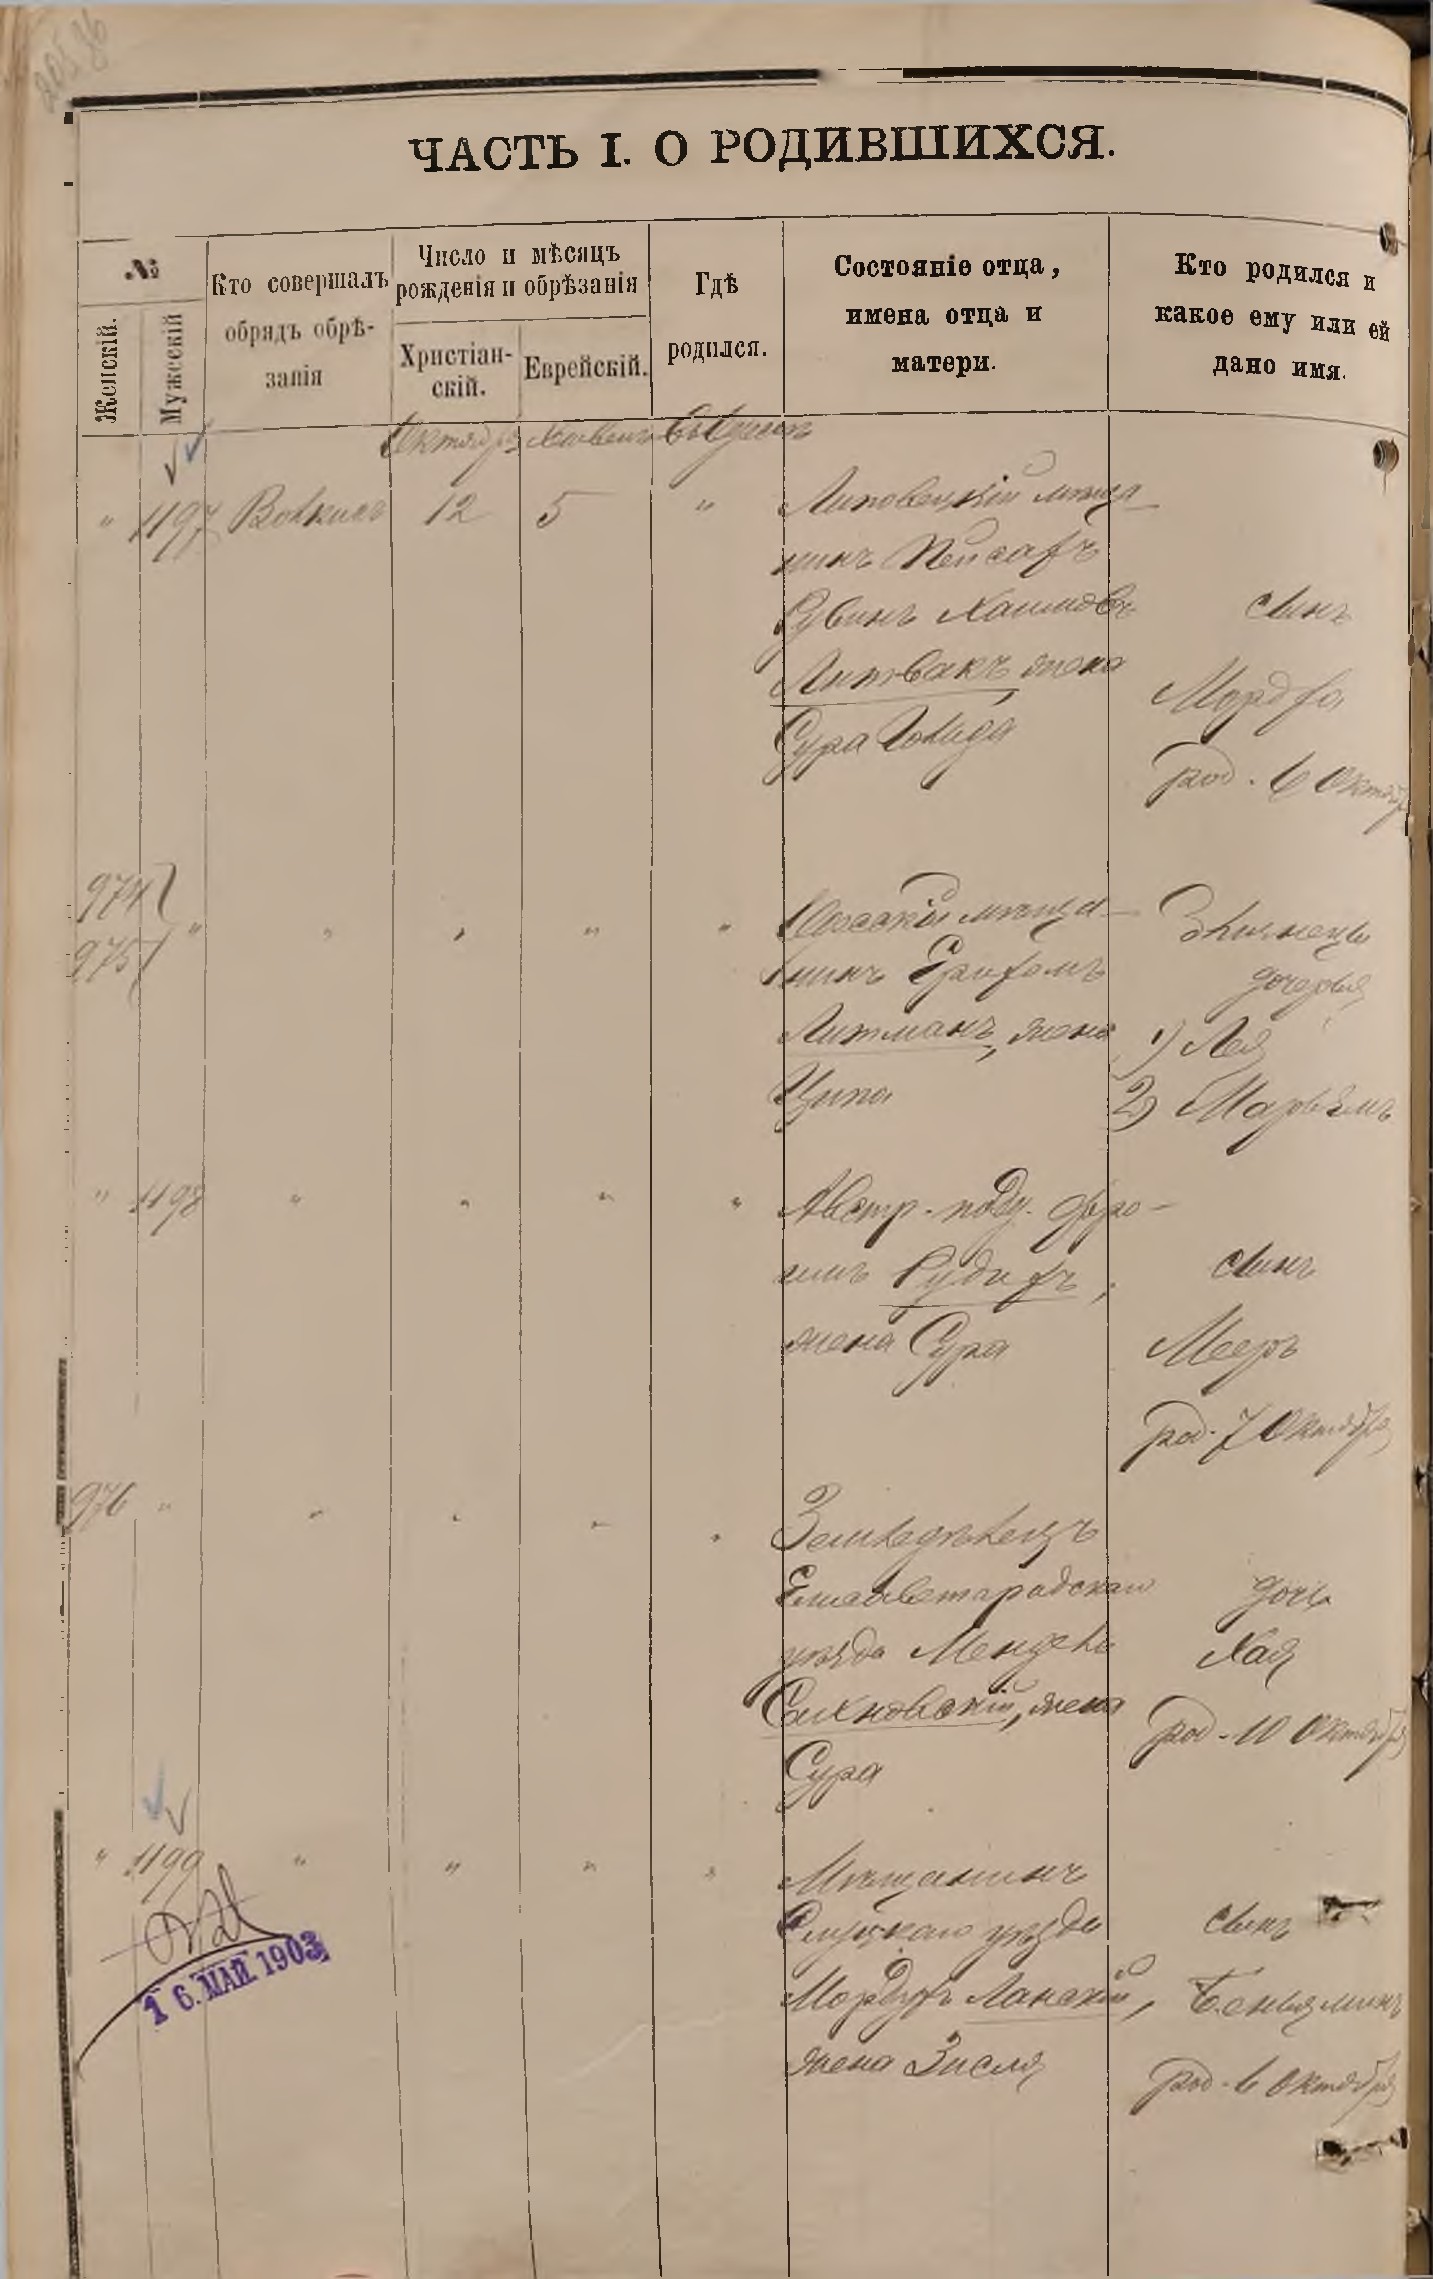 ЧАСТЬ I. О РОДИВШИХСЯ.
№
Женскій.
Мужескій
Кто совершалъ
обрядъ обрѣ-
занія
Число и мѣсяцъ
рожденія и обрѣзанія
Христіан-
скій.
Еврейскій.
Гдѣ
родился.
Состояніе отца,
имена отца и
матери.
Кто родился и
какое ему или ей
дано имя.
Октября Хешвенъ Въ Одессѣ
" 1197 Волкисъ 12 5 "
Липовецкій мѣща-
нинъ Пейсахъ
Рувинъ Хаимовъ
Литвакъ, жена
Сура Гольда
сынъ
Мордко
род. 6 Октября
974
975 " " " " "
Одесскій мѣща-
нинъ Ефроимъ
Литманъ, жена
Ципа
Близнецы
дочери
1) Лея
2) Марьямъ
" 1198 " " " "
Австр. подд. Фро-
имъ Рудихъ,
жена Сура
сынъ
Мееръ
род. 7 Октября
976 " " " " "
Земледѣлецъ
Елисаветградскаго
уѣзда Мендель
жена
Сура
дочь
Хая
род. 10 Октября
" 1199 " " " "
Мѣщанинъ
Слуцкаго уѣзда
Мордухъ Ланскій,
жена Зисля
сынъ
Беньяминъ
род. 6 Октября
16. МАЙ 1903